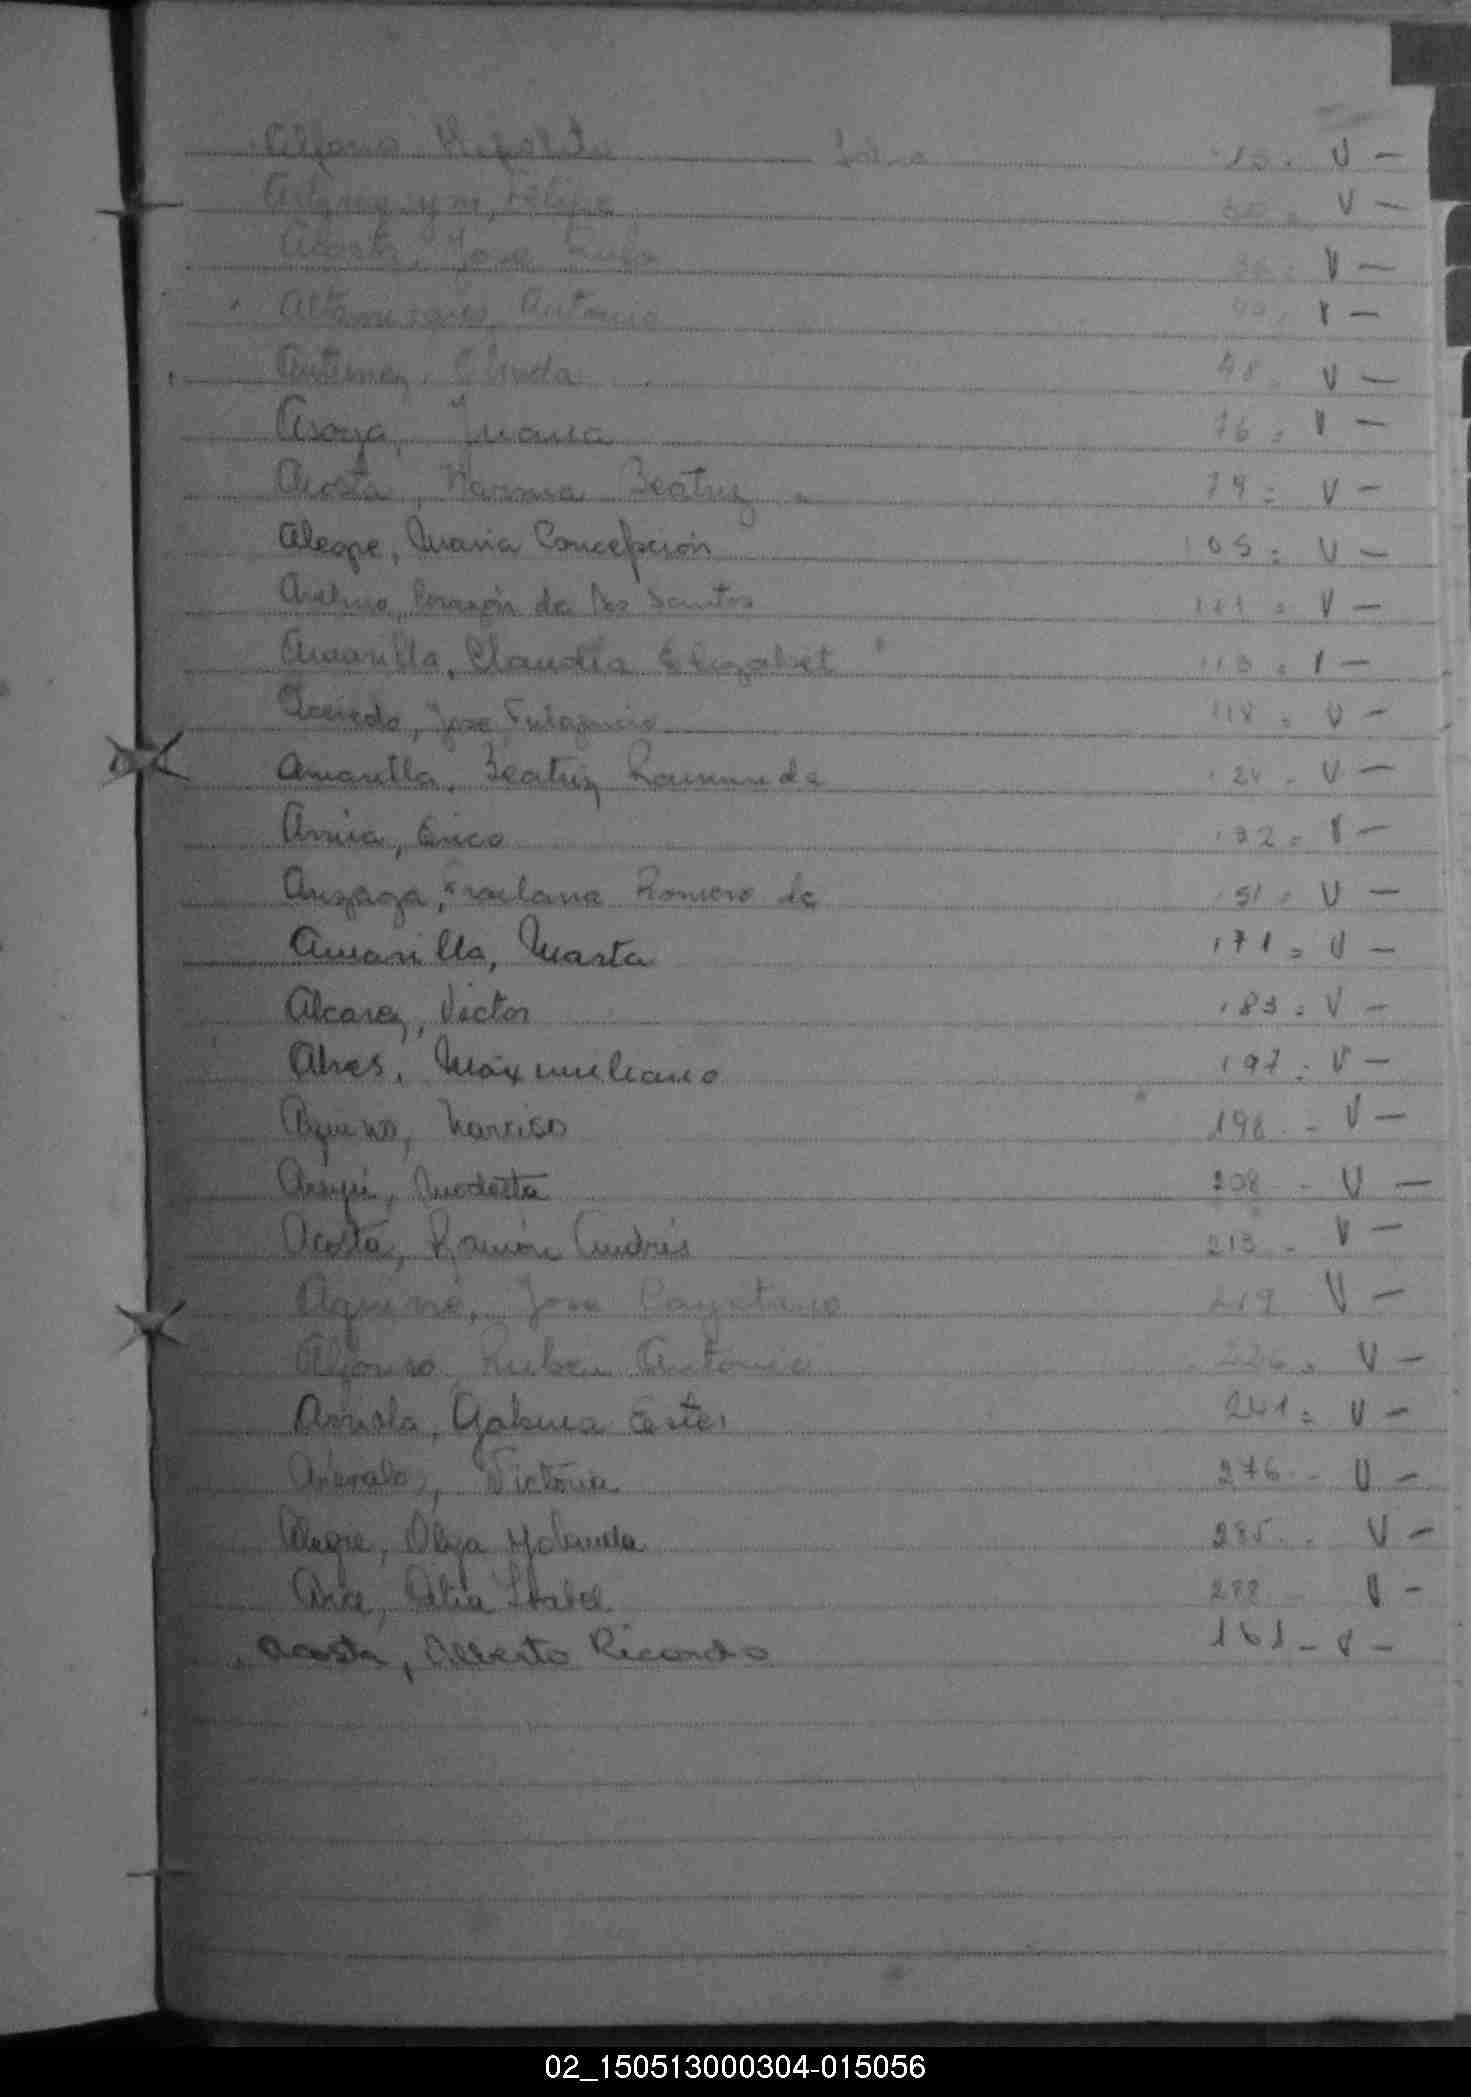 Alfonso Hipolito Folio 13. V —
Felipe 30. V —
Acosta, Jose 36. V —
Altamirano, Antonio 40. V —
48. V —
Asoya, Juana 76. V —
Acosta, Norma Beatriz 79. V —
Alegre, Maria Concepción 105. V —
Avelino, Corazón de Dos Santos 111. V —
Amarilla, Claudia Elizabet 113. V —
Acevedo, Jose Fulgencio 118. V —
Amarilla, Beatriz Raimunda 124. V —
Erico 132. V —
Romero de 151. V —
Amarilla, Marta 171. V —
Alcarez, Victor 183. V —
Alves, Maximiliano 197. V —
Aquino, Narciso 198. - V —
Modesta 208 - V —
Acosta, Ramón Andrés 213 - V —
Aquino, Jose Cayetano 219 V —
Alfonso, Ruben Antonio 226. V —
Arriola, Gabina Ester 241. V —
Arevalos, Victoria 276. - V —
Alegre, Olga Yolanda 285. V —
Arce, Celia Isabel 288 V -
Acosta, Alberto Ricardo 161 - V -
02_150513000304-015056